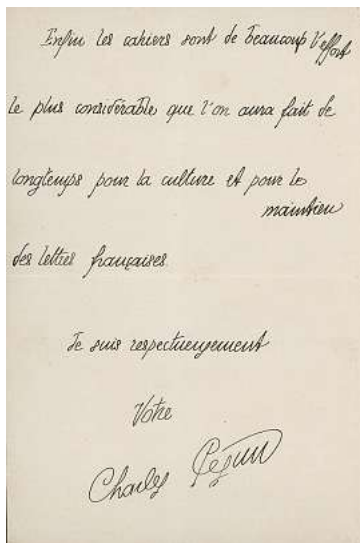 Enfin les cahiers sont de beaucoup l'effort
le plus considérable que l'on aura fait de
longtemps pour la culture et pour le
maintien
des lettres françaises
Je suis respectueusement
Votre
Charles Péguy